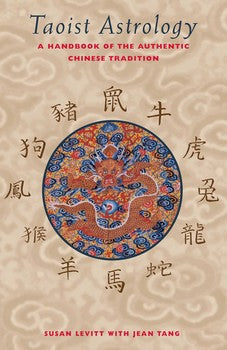 Taoist Astrology
A HANDBOOK OF THE AUTHENTIC
CHINESE TRADITION
鼠
牛
虎
兔
龍
蛇
馬
羊
猴
鳳
狗
豬
SUSAN LEVITT WITH JEAN TANG